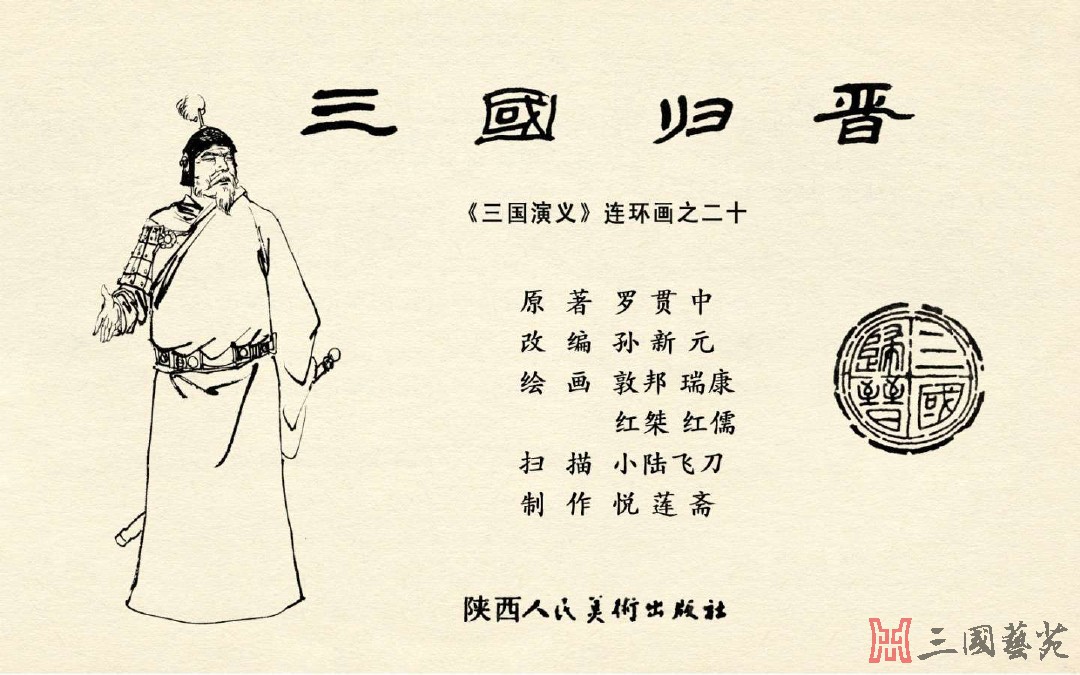 三國归晋
《三国演义》连环画之二十
原著 罗贯中
改编 孙新元
绘画 敦邦 瑞康
红桀 红儒
扫描 小陆飞刀
制作 悦莲斋
三國歸晉
陕西人民美術出版社
三國藝苑